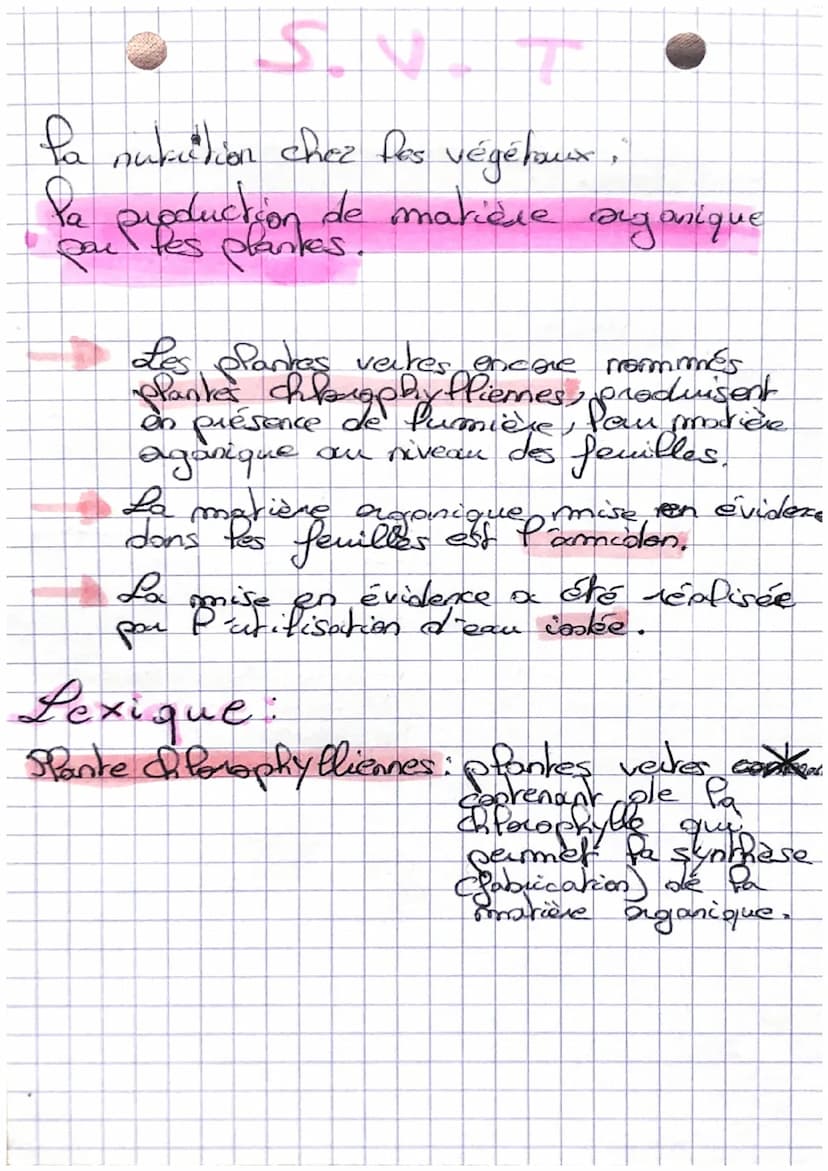 S.V.T
La nutrition chez les végétaux :
La production de matière organique
par les plantes.
Les plantes vertes encore nommés
plantes chlorophylliennes, produisent
en présence de lumière, leur matière
organique au niveau des feuilles.
La matière organique mise en évidence
dans les feuilles est l'amidon.
La mise en évidence a été réalisée
par l'utilisation d'eau iodée.
Lexique :
Plante chlorophylliennes : plantes vertes
contenant de la
chlorophylle qui
permet la synthèse
(fabrication) de la
matière organique.